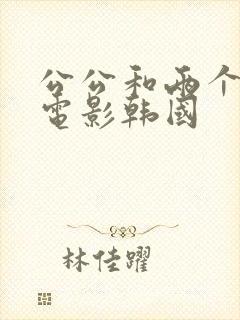 公公和两个
电影韩国
林佳躍